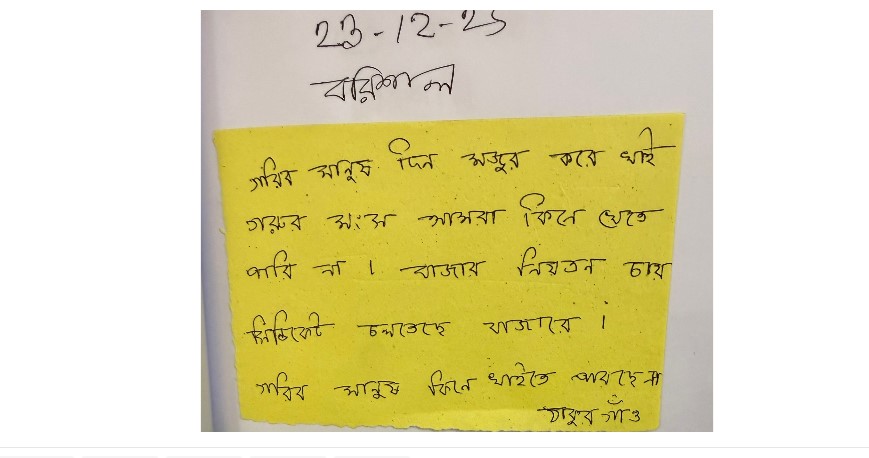 23-12-25
বরিশাল
গরিব মানুষ দিন মজুর করে খাই
গরুর মাংস আমরা কিনে খেতে
পারি না । বাজার নিয়তন চায়
সিন্ডিকেট চলতেছে বাজারে ।
গরিব মানুষ কিনে খাইতে পারছে না
ঠাকুর গাঁও